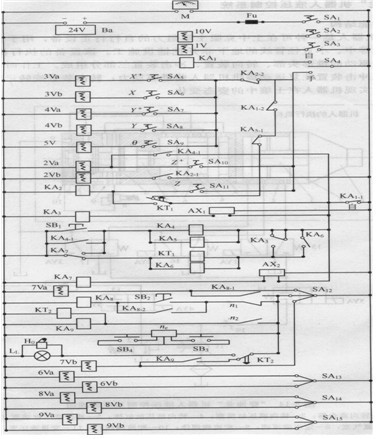 M
Fu
SA₁
24V
Ba
10V
SA₂
1V
SA₃
KA₁
自
SA₄
手
3Va
X⁺
SA₅
KA₂₋₂
3Vb
X
SA₆
4Va
Y⁺
SA₇
KA₁₋₂
4Vb
Y
SA₈
5V
θ
SA₉
2Va
Z⁺
SA₁₀
2Vb
KA₂₋₁
KA₂
Z
SA₁₁
KT₁
AX₁
KA₁₋₁
自
KA₃
SB₁
KA₄
KA₅
KA₇
KT₁
KA₃
KA₆
AX₂
KA₇
7Va
SB₂
KA₈₋₁
SA₁₂
KA₈
n₁
KT₂
KA₈₋₂
KA₉
n₂
n₀
SB₄
SB₃
7Vb
KA₉
KT₂
6Va
SA₁₃
6Vb
8Va
SA₁₄
8Vb
9Va
SA₁₅
9Vb